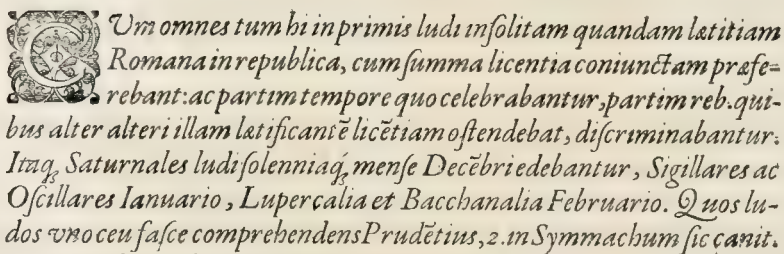 CVm omnes tum hi in primis ludi inſolitam quandam lætitiam
Romana in republica, cum ſumma licentia coniunctam præfe-
rebant: ac partim tempore quo celebrabantur, partim reb. qui-
bus alter alteri illam lætificantē licētiam oſtendebat, diſcriminabantur.
Itaq; Saturnales ludi ſolenniaq́; menſe Decēbri edebantur, Sigillares ac
Oſcillares Ianuario, Lupercalia et Bacchanalia Februario. Quos lu-
dos vno ceu faſce comprehendens Prudētius, 2. in Symmachum ſic canit.